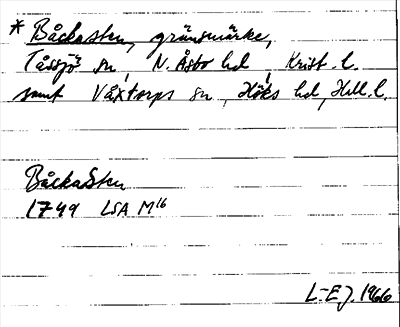 * Båckasten, gränsmärke,
Tåssjö sn, N. Åsbo hd, Krist. l.
samt Våxtorps sn, Höks hd, Hall. l.
Båckasten
1749 LSA M16
L-E J. 1966